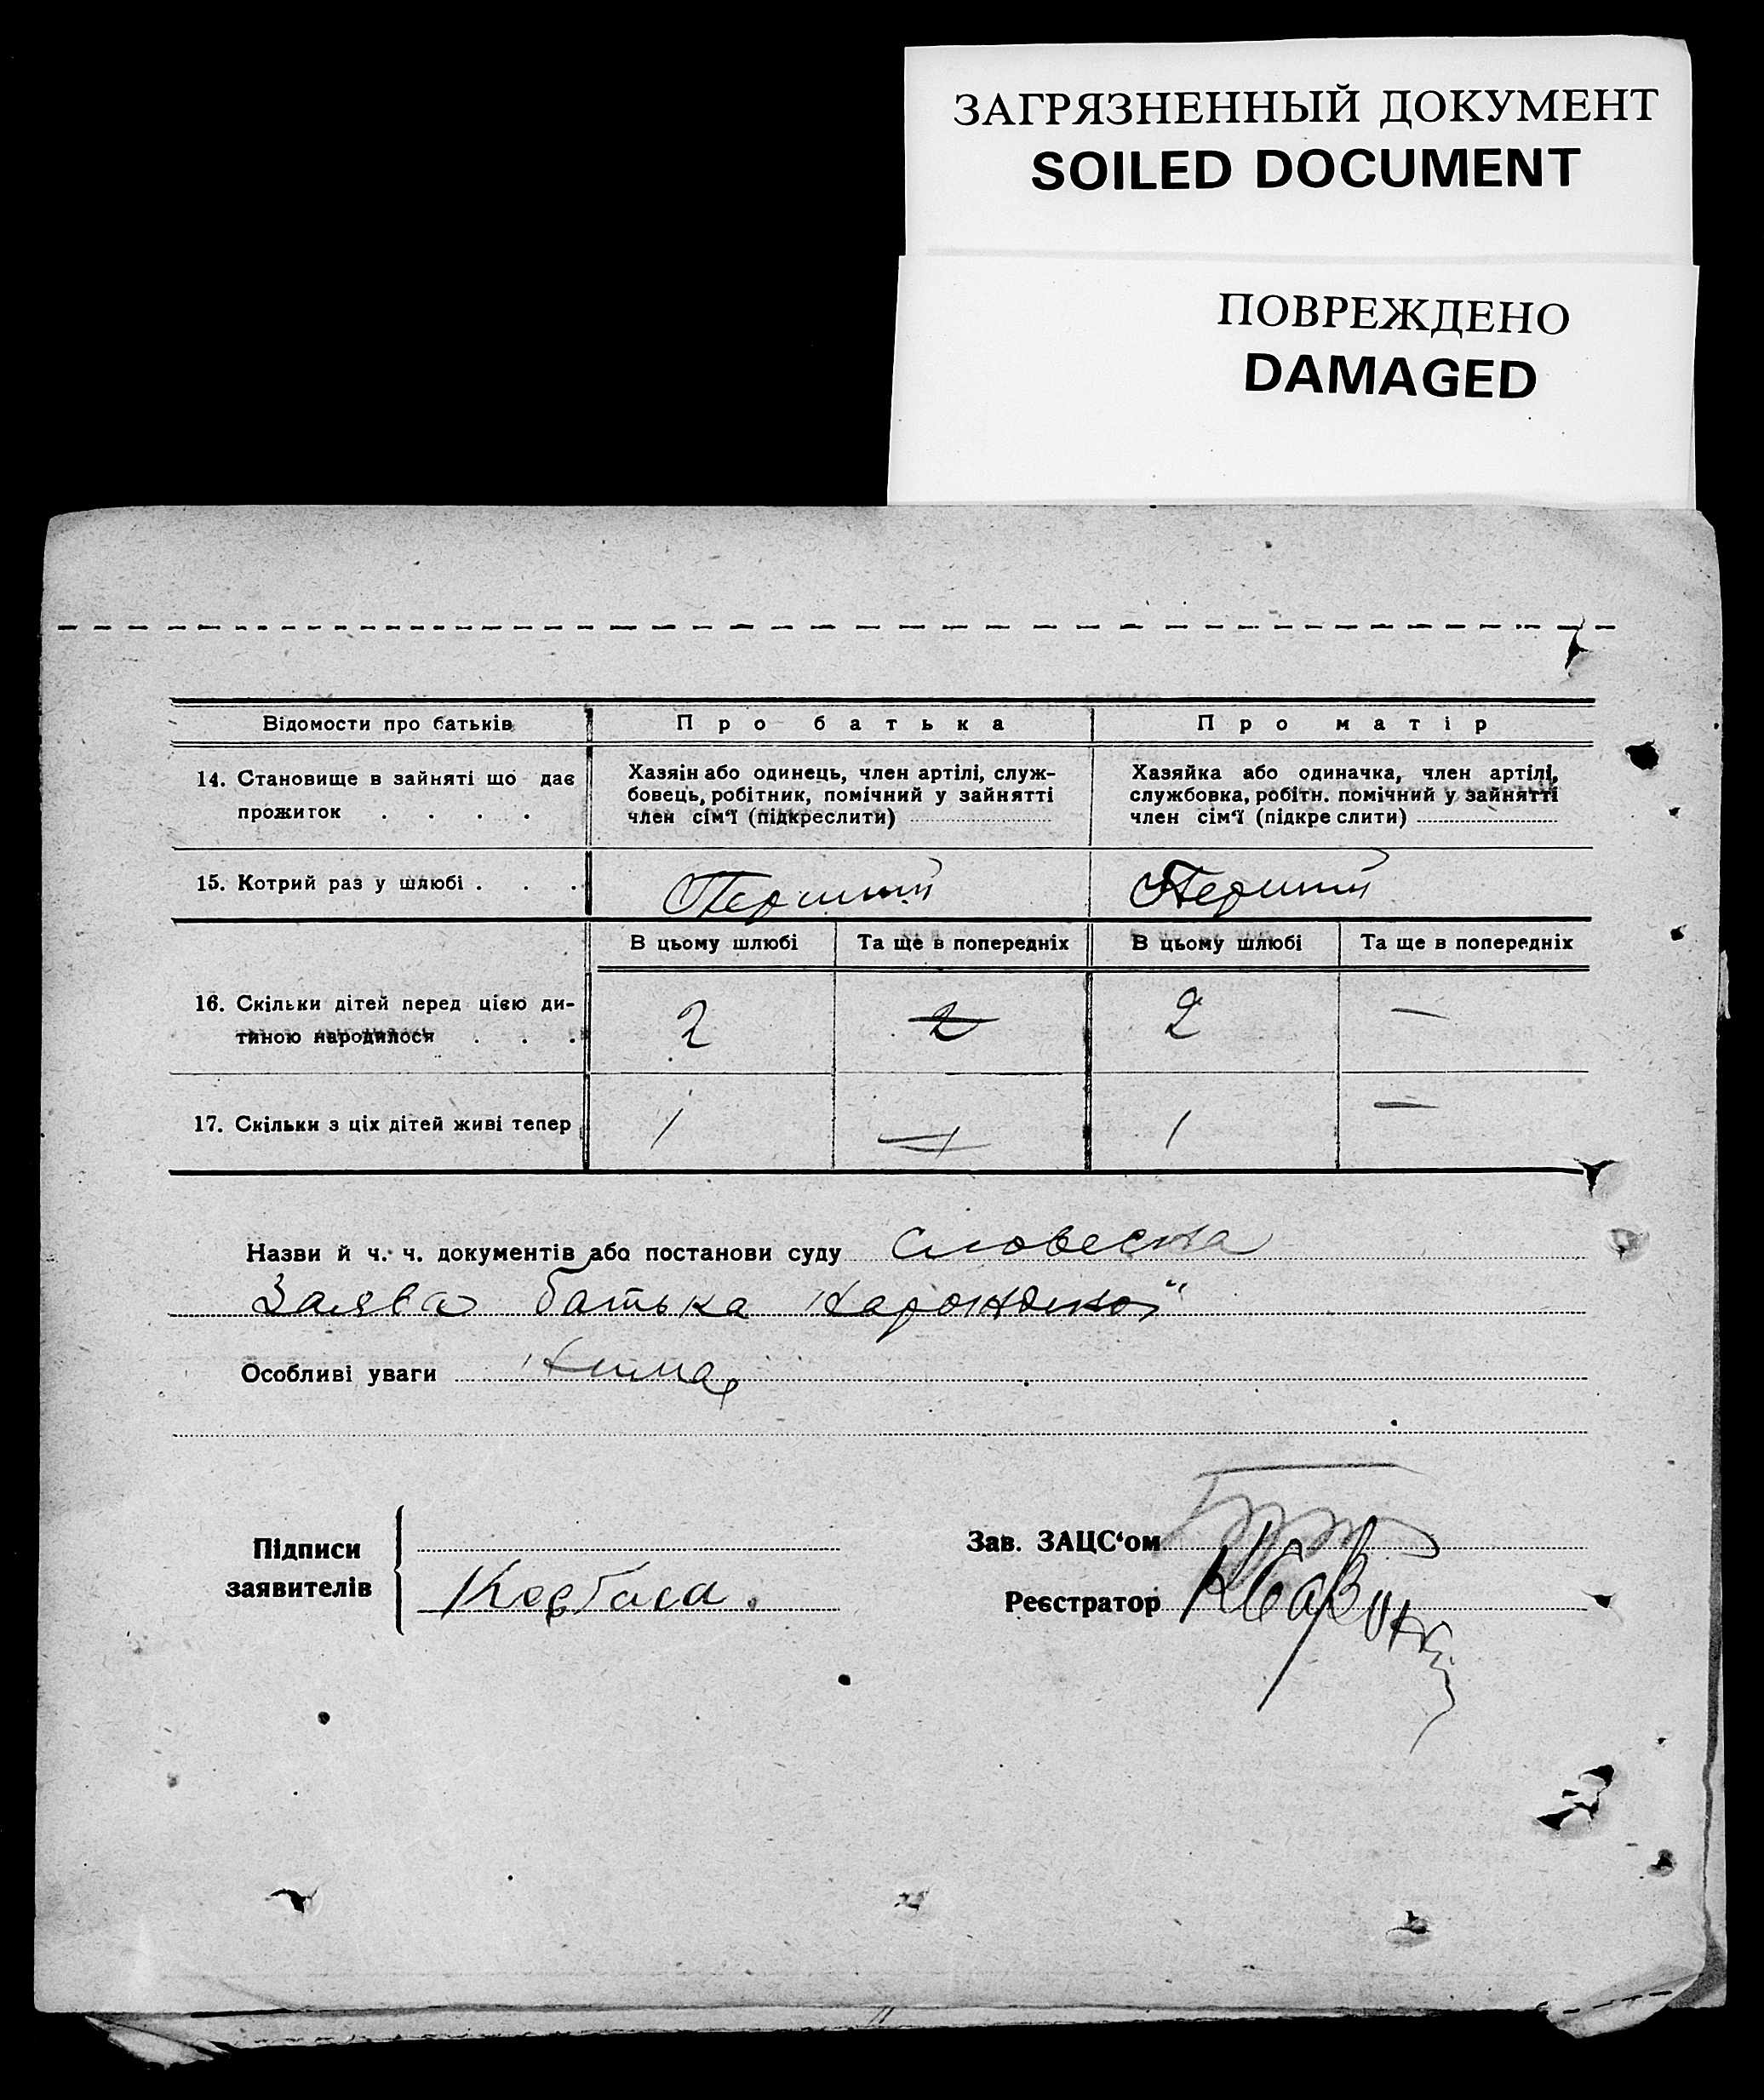 ЗАГРЯЗНЕННЫЙ ДОКУМЕНТ
SOILED DOCUMENT
ПОВРЕЖДЕНО
DAMAGED
Відомости про батьків Про батька Про матір
14. Становище в зайняті що дає
прожиток . . . .
Хазяін або одинець, член артілі, служ-
бовець, робітник, помічний у зайнятті
член сім'ї (підкреслити)
Хазяйка або одиначка, член артілі,
службовка, робітн. помічний у зайнятті
член сім'ї (підкреслити)
15. Котрий раз у шлюбі . . . Перший Перший
В цьому шлюбі Та ще в попередніх В цьому шлюбі Та ще в попередніх
16. Скільки дітей перед цією ди-
тиною народилося . . . 2 2 2 —
17. Скільки з ціх дітей живі тепер 1 1 1 —
Назви й ч. ч. документів або постанови суду словесна
Заява батька народженої
Особливі уваги Нима
Підписи
заявителів
Зав. ЗАЦС'ом
Реєстратор